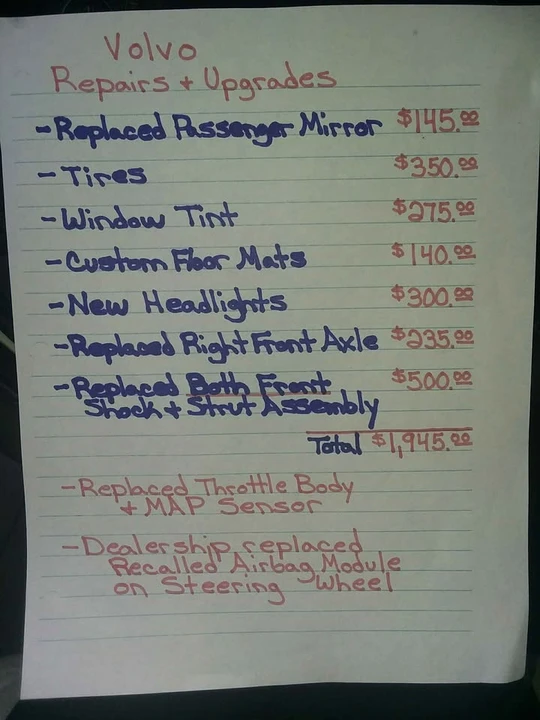 Volvo
Repairs + Upgrades
- Replaced Passenger Mirror $145.00
- Tires $350.00
- Window Tint $275.00
- Custom Floor Mats $140.00
- New Headlights $300.00
- Replaced Right Front Axle $235.00
- Replaced Both Front $500.00
Shock + Strut Assembly
Total $1,945.00
- Replaced Throttle Body
+ MAP Sensor
- Dealership replaced
Recalled Airbag Module
on Steering Wheel